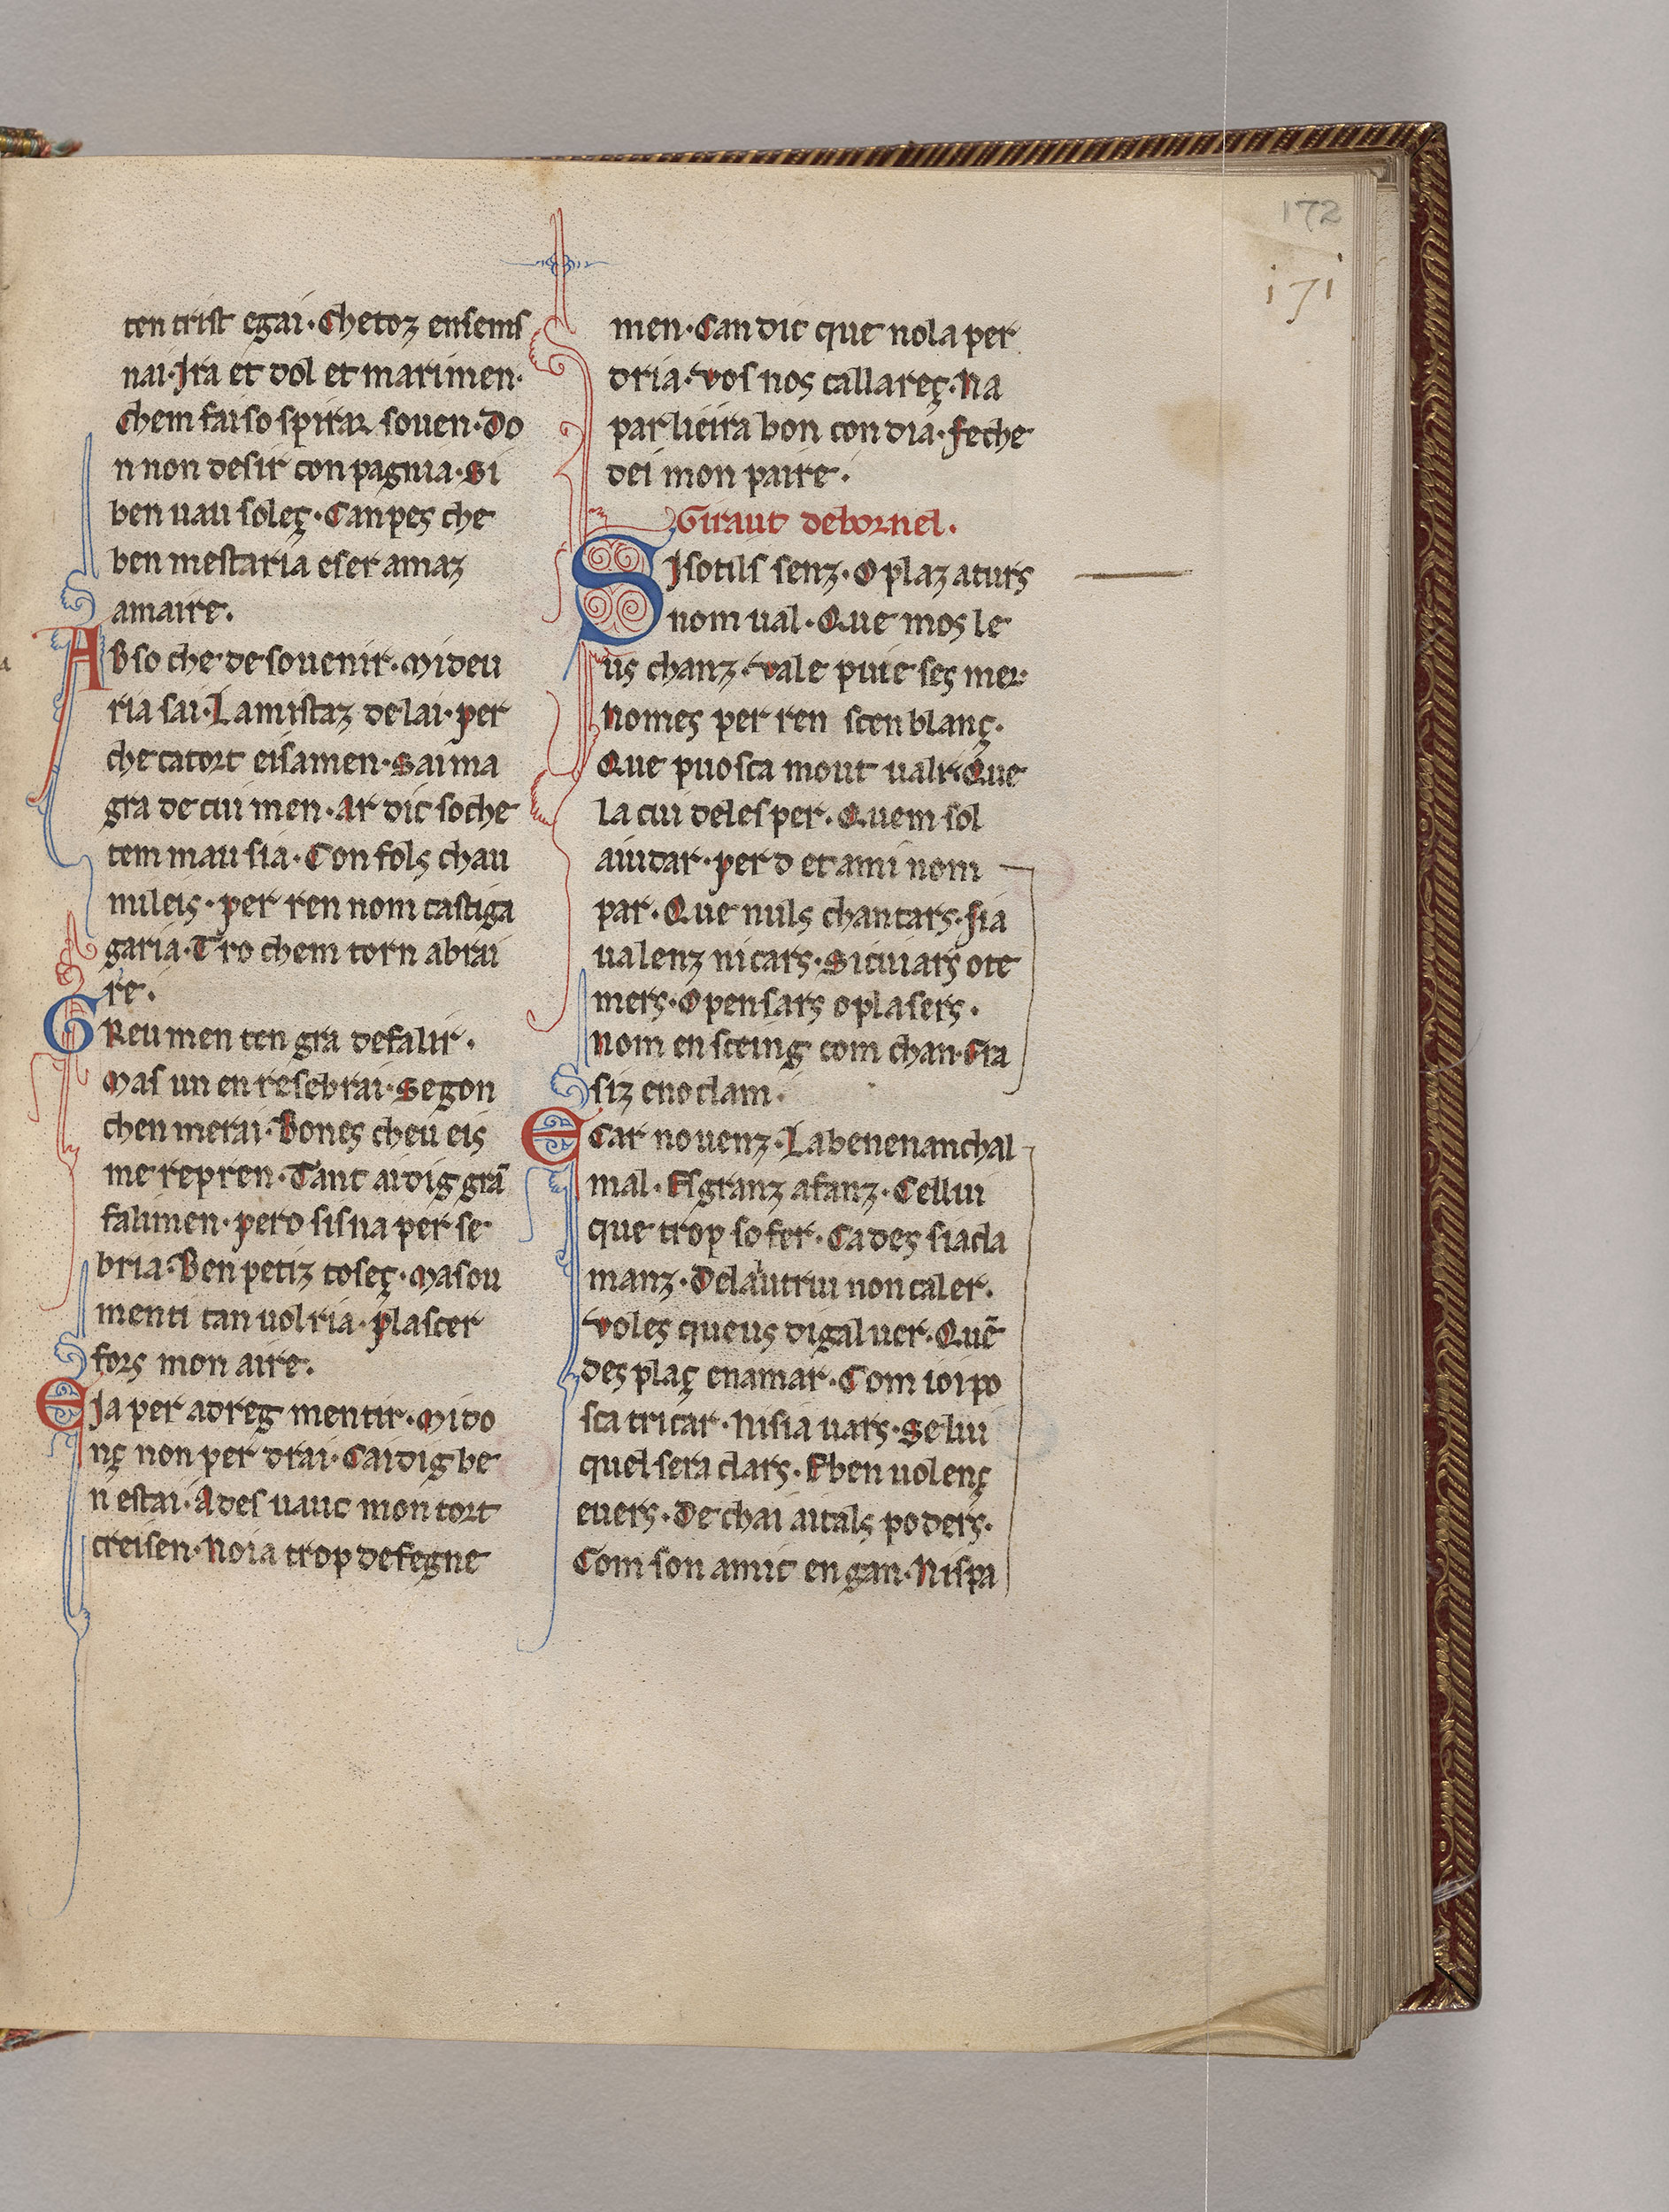 172
171
ten trist egai. Chetoz ensems
nai. Ira et dol et marimen.
Chem fai so spirar souen. Do
n non desir conpagnia. Si
ben uau soleç. Can pes che
ben mestaria eser amaz
amaire.
Abso che de souenir. Mi deu
ria sai. Lamistaz delai. per
che tatort eisamen. Saima
gra de cui men. Ar dic soche
tem mau sia. Con fols chau
nuleis. per ren nom castiga
garia. Tro chem torn abrai
re.
Greu men ten gra defalir.
Mas un en resebrai. Segon
chen merai. Bones cheu eis
me repren. Tant ai dig grā
falimen. pero sis na per se
bria. Ben petiz toseç. Mas ou
menti tan uolria. plascer
fors mon aire.
Eia per adreg mentir. Mi do
nç non per drai. Cai dig be
n estai. Ades uauc mon tort
creisen. Noia trop defegne
men. Can dic que nola per
dria. Vos nos callareç. Na
parlieira bon condia. feche
dei mon paire.
Giraut debornel.
SIsotils senz. O plaz aturs
nom ual. Que mos le
us chanz. Vale puie ses mer.
Nomes per ren scen blanç.
Que puosca mout ualr. Que
la cui deles per. Quem sol
aiudar. per d et ami nom
par. Que nuls chantars. sia
ualenz nicars. Si cuiars ote
mers. Opensars oplasers.
nom ensteing com chan. Cra
siz eno clam.
Ecar no uenz. Labenenanchal
mal. Es granz afanz. Cellui
que trop sofer. Cades siacla
manz. Delautrui non caler.
Voles queus digal uer. Quē
des plaç enamar. Com ioi po
sca tricar. Nisia uars. Se lui
quel sera clars. Eben uolenç
euers. De chai aitals poders.
Com son amic engan. Nispa